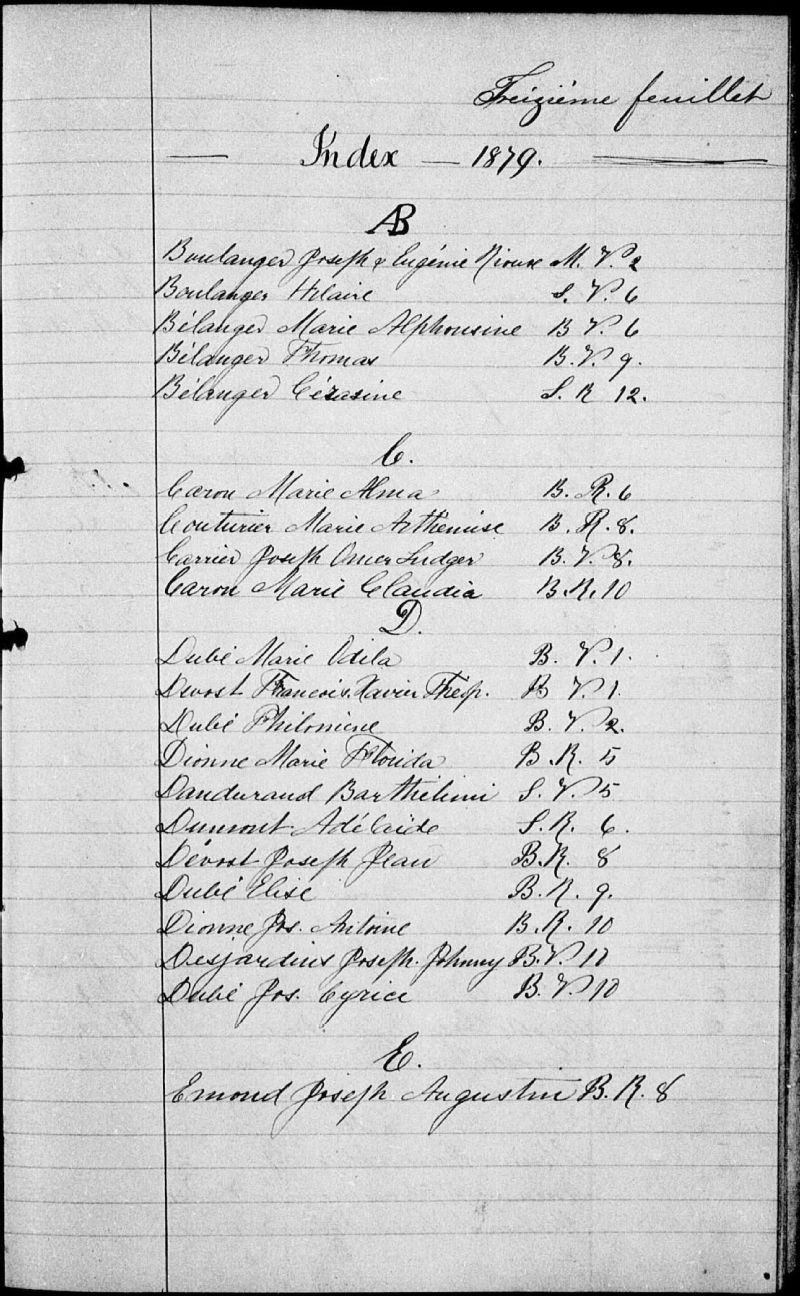 Treizième feuillet
Index — 1879.
AB
Boulanger Joseph & Eugénie Rioux M. V. 2
Boulanger Hilaire S. V. 6
Bélanger Marie Alphonsine B V. 6
Bélanger Thomas B. V. 9.
Bélanger Cézasine S. R 12.
C.
Caron Marie Alma B. R. 6
Couturier Marie Arthémise B. R. 8.
Carrier Joseph Omer Ludger B. V. 8.
Caron Marie Claudia B. R. 10
D.
Dubé Marie Odila B. V. 1.
Devost Francois Xavier Thesp. B V. 1.
Dubé Philomène B. V. 2.
Dionne Marie Florida B. R. 5
Dandurand Barthélémi S. V. 5
Dumont Adélaïde S. R. 6.
Dévost Joseph Jean B. R. 8
Dubé Elise B. R. 9.
Dionne Jos. Antoine B. R. 10
Desjardins Joseph Johnny B. V. 10
Dubé Jos. Cyrice B. V. 10
E.
Emond Joseph Augustin B. R. 8